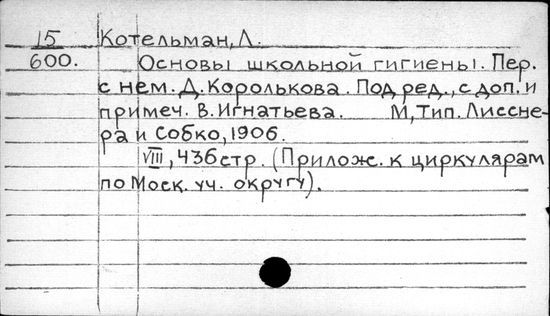 15 Котельман, Л.
600. Основы школьной гигиены. Пер.
с нем. Д. Королькова. Под ред., с доп. и
примеч. В. Игнатьева. М, Тип. Лиссне-
ра и Собко, 1906.
VIII, 436 стр. (Прилож. к циркулярам
по Моск. уч. округу).